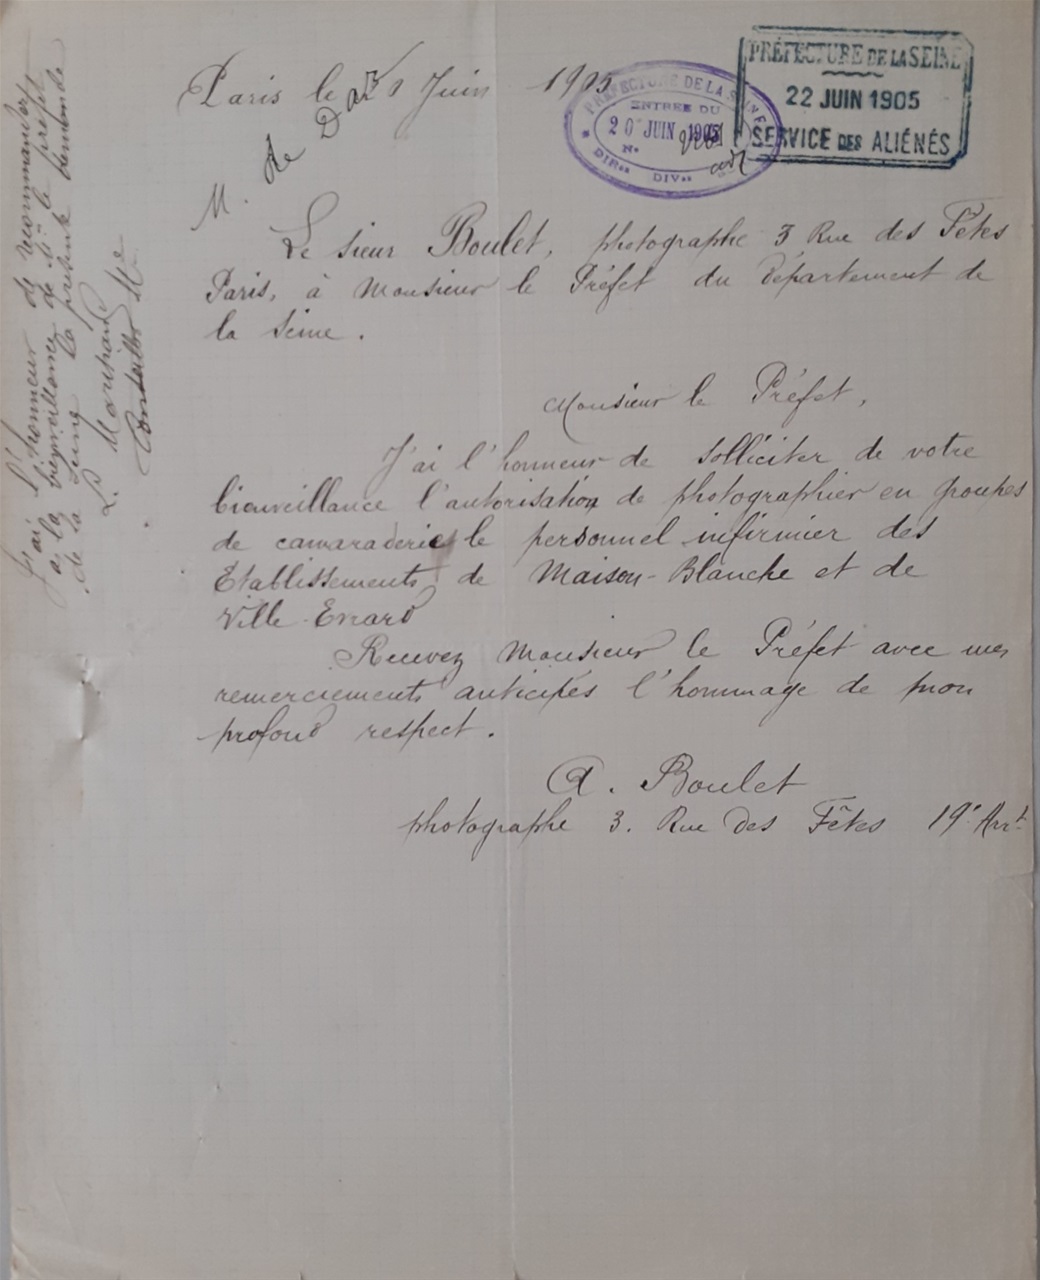 Paris le Juin 1905
M. de
PRÉFECTURE DE LA SEINE
ENTRÉE DU
20 JUIN 1905
N°
DIR^on DIV^on
PRÉFECTURE DE LA SEINE
22 JUIN 1905
SERVICE DES ALIÉNÉS
Le sieur Boulet, photographe 3 Rue des Fêtes
Paris, à Monsieur le Préfet du département de
la Seine.
Monsieur le Préfet,
J'ai l'honneur de solliciter de votre
bienveillance l'autorisation de photographier en groupes
de camaraderie le personnel infirmier des
Etablissements de Maison-Blanche et de
Ville-Evrard
Recevez Monsieur le Préfet avec mes
remerciements anticipés l'hommage de mon
profond respect.
A. Boulet
photographe 3. Rue des Fêtes 19e Arrt
J'ai l'honneur de recommander
à la bienveillance de M. le préfet
de la Seine la présente demande
Conseiller Mal